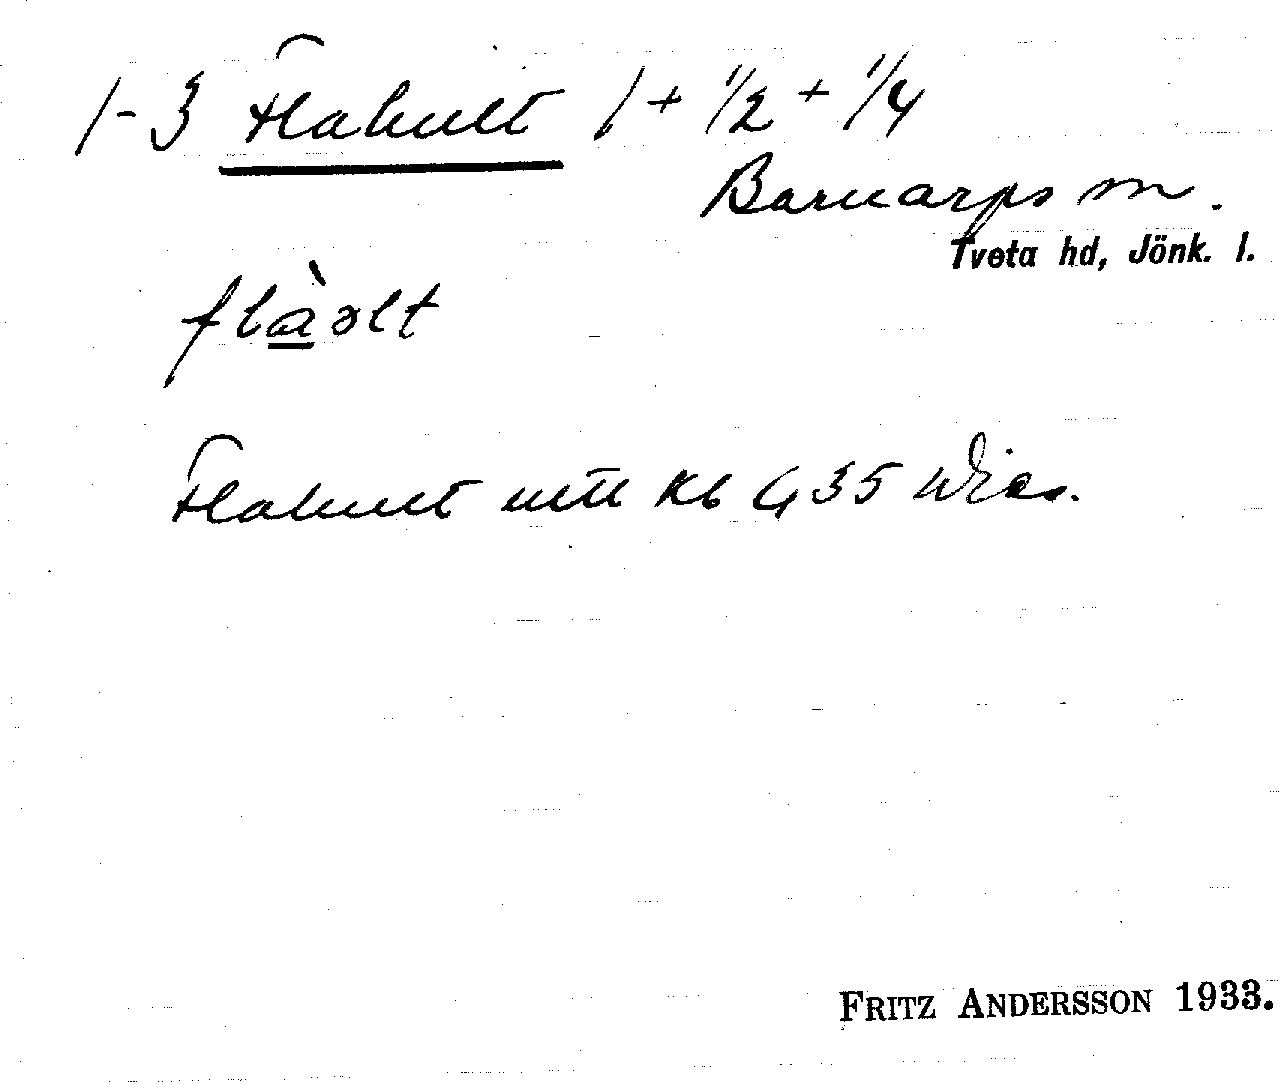 1-3 Flahult 1 + 1/2 + 1/4
Barnarps sn.
Tveta hd, Jönk. l.
flàolt
Flahult utt Kb G 35 Wies.
FRITZ ANDERSSON 1933.